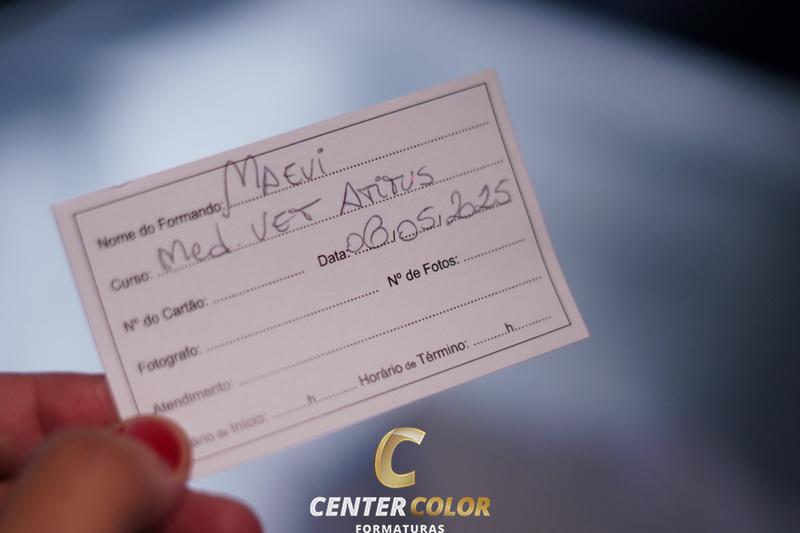 Nome do Formando: MAEVI
Curso: Med. VET ATITUS
Nº do Cartão: Data: 08/05/2025
Fotografo: Nº de Fotos:
Atendimento:
de Início: h Horário de Término: h
CENTER COLOR
FORMATURAS